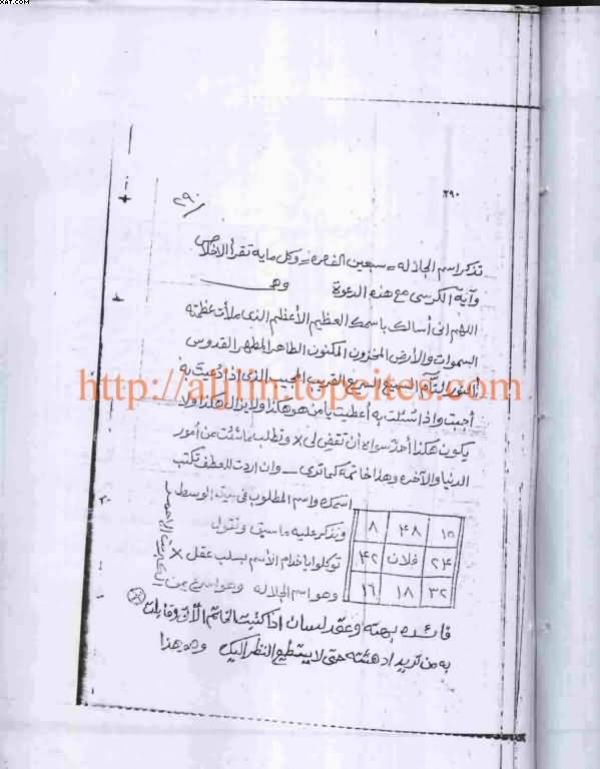 XAT.COM
٢٩٠
٢٩٠
تذكر اسم الجلاله = سبعين الف مره = وكل مايه تقرأ الاخلاص
وآية الكرسى مع هذه الدعوة وهى
اللهم انى أسالك باسمك العظيم الأعظم الذى ملأت عظمته
السموات والأرض المخزون المكنون الطاهر المطهر القدوس
النور التآم السميع السريع القريب المجيب الذى اذا دعيت به
http://alljin.topcites.com
أجبت واذا سئلت به أعطيت يامن هو هكذا ولايزال هكذا ولا
يكون هكذا أحد سواه أن تقضى لى × وتطلب ماشئت من أمور
الدنيا والآخره وهذا خاتمة كماترى = وان اردت للعطف تكتب
اسمك واسم المطلوب فى بيت الوسط
وتذكر عليه ماسبق وتقول
توكلوا ياخدام الأسم بسلب عقل ×
وهو اسم الجلاله وهو اسرع من
١٥ ٤٨ ٨
٢٤ فلان ٤٢
٣٢ ١٨ ١٦
فائده بهته وعقد لسان اذا كتبت الخاتم الأتى وقابلت
به من تريد ادهشته حتى لايستطيع النظر اليك وهو هذا